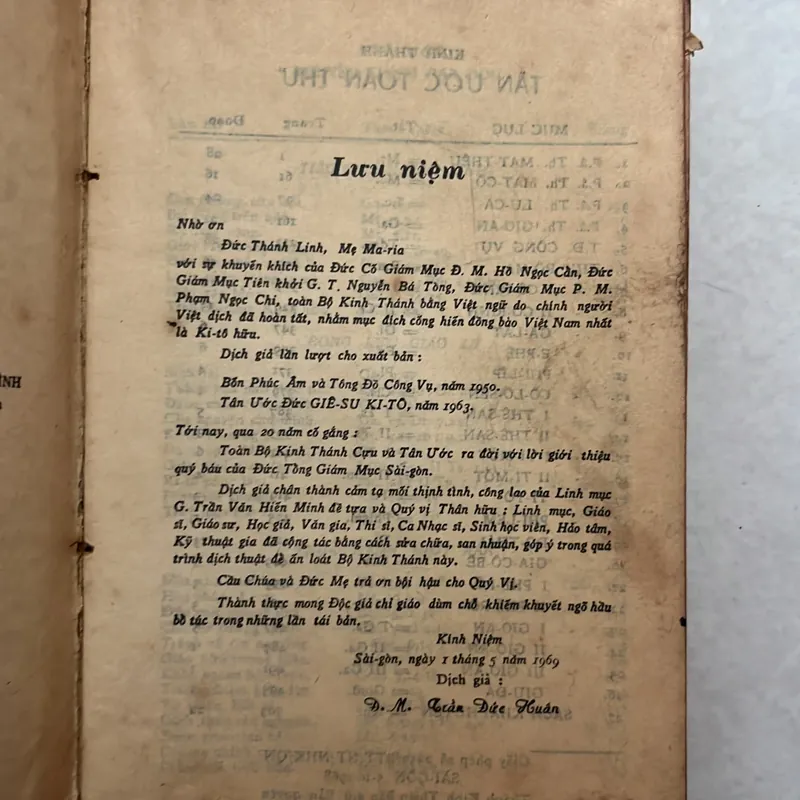 Lưu niệm
Nhờ ơn
Đức Thánh Linh, Mẹ Ma-ria
với sự khuyến khích của Đức Cố Giám Mục Đ. M. Hồ Ngọc Cẩn, Đức
Giám Mục Tiên khởi G. T. Nguyễn Bá Tòng, Đức Giám Mục P. M.
Phạm Ngọc Chi, toàn Bộ Kinh Thánh bằng Việt ngữ do chính người
Việt dịch đã hoàn tất, nhằm mục đích cống hiến đồng bào Việt Nam nhất
là Ki-tô hữu.
Dịch giả lần lượt cho xuất bản :
Bốn Phúc Âm và Tông Đồ Công Vụ, năm 1950.
Tân Ước Đức GIÊ-SU KI-TÔ, năm 1963.
Tới nay, qua 20 năm cố gắng :
Toàn Bộ Kinh Thánh Cựu và Tân Ước ra đời với lời giới thiệu
quý báu của Đức Tổng Giám Mục Sài-gòn.
Dịch giả chân thành cảm tạ mối thịnh tình, công lao của Linh mục
G. Trần Văn Hiến Minh đề tựa và Quý vị Thân hữu : Linh mục, Giáo
sĩ, Giáo sư, Học giả, Văn gia, Thi sĩ, Ca Nhạc sĩ, Sinh học viên, Hảo tâm,
Kỹ thuật gia đã cộng tác bằng cách sửa chữa, san nhuận, góp ý trong quá
trình dịch thuật để ấn loát Bộ Kinh Thánh này.
Cầu Chúa và Đức Mẹ trả ơn bội hậu cho Quý Vị.
Thành thực mong Độc giả chỉ giáo dùm chỗ khiếm khuyết ngõ hầu
bổ túc trong những lần tái bản.
Kính Niệm
Sài-gòn, ngày 1 tháng 5 năm 1969
Dịch giả :
Đ. M. Trần Đức Huân